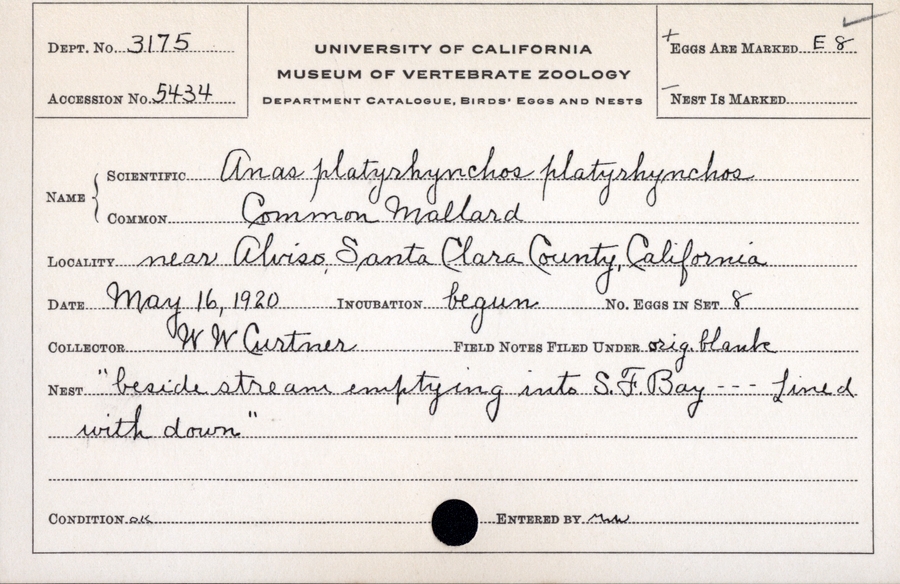 Dept. No. 3175
Accession No. 5434
UNIVERSITY OF CALIFORNIA
MUSEUM OF VERTEBRATE ZOOLOGY
Department Catalogue, Birds' Eggs and Nests
+ Eggs Are Marked E 8
– Nest Is Marked
Name { Scientific Anas platyrhynchos platyrhynchos
Common Common Mallard
Locality near Alviso, Santa Clara County, California
Date May 16, 1920 Incubation begun No. Eggs in Set 8
Collector W W Curtner Field Notes Filed Under orig. blank
Nest "beside stream emptying into S.F. Bay --- Lined
with down"
Condition OK Entered by